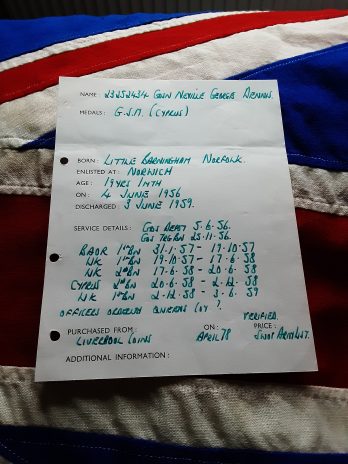 NAME: 23252434 GDN NEVILLE GEORGE DENNIS
MEDALS: G.S.M (CYPRUS)
BORN: LITTLE BARNINGHAM NORFOLK.
ENLISTED AT: NORWICH
AGE: 19YRS 1MTH
ON: 4 JUNE 1956
DISCHARGED: 3 JUNE 1959.
SERVICE DETAILS: GDN DEPOT 5.6.56.
GDS TRG BN 25.11.56.
BAOR 1st BN 31.1.57 - 19.10.57
UK 1st BN 19.10.57 - 17.6.58
UK 2nd BN 17.6.58 - 20.6.58
CYPRUS 2nd BN 20.6.58 - 2.12.58
UK 1st BN 2.12.58 - 3.6.59
OFFICERS ORDERLY QUEENS COY?
VERIFIED.
PURCHASED FROM: ON: PRICE:
LIVERPOOL COINS APRIL 78
ADDITIONAL INFORMATION: